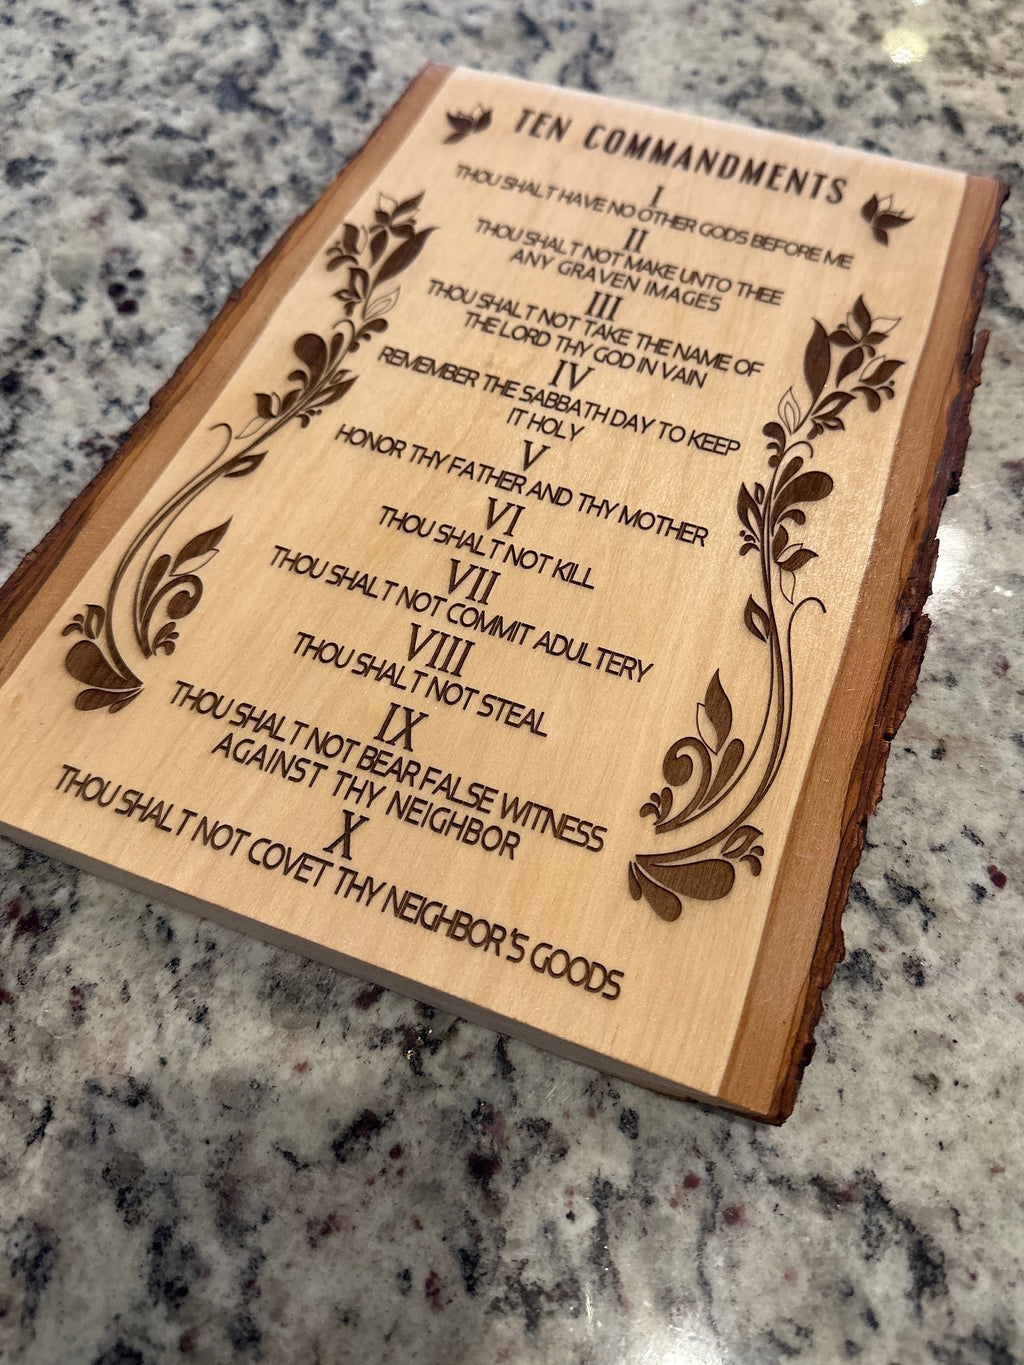 TEN COMMANDMENTS
I
THOU SHALT HAVE NO OTHER GODS BEFORE ME
II
THOU SHALT NOT MAKE UNTO THEE
ANY GRAVEN IMAGES
III
THOU SHALT NOT TAKE THE NAME OF
THE LORD THY GOD IN VAIN
IV
REMEMBER THE SABBATH DAY TO KEEP
IT HOLY
V
HONOR THY FATHER AND THY MOTHER
VI
THOU SHALT NOT KILL
VII
THOU SHALT NOT COMMIT ADULTERY
VIII
THOU SHALT NOT STEAL
IX
THOU SHALT NOT BEAR FALSE WITNESS
AGAINST THY NEIGHBOR
X
THOU SHALT NOT COVET THY NEIGHBOR'S GOODS